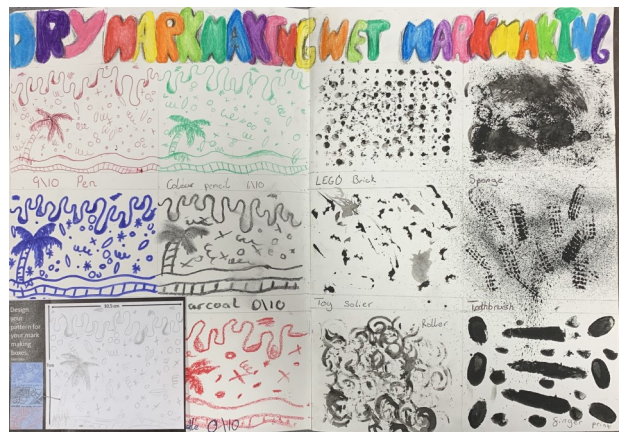 DRY MARKMAKING
WET MARKMAKING
9\10 Pen
Colour pencil 6\10
LEGO Brick
Sponge
arcoat 0\10
Toy Solier
Toothbrush
Design
your
pattern for
your mark
making
boxes.
10.5cm
Roller
0\10
Singer print